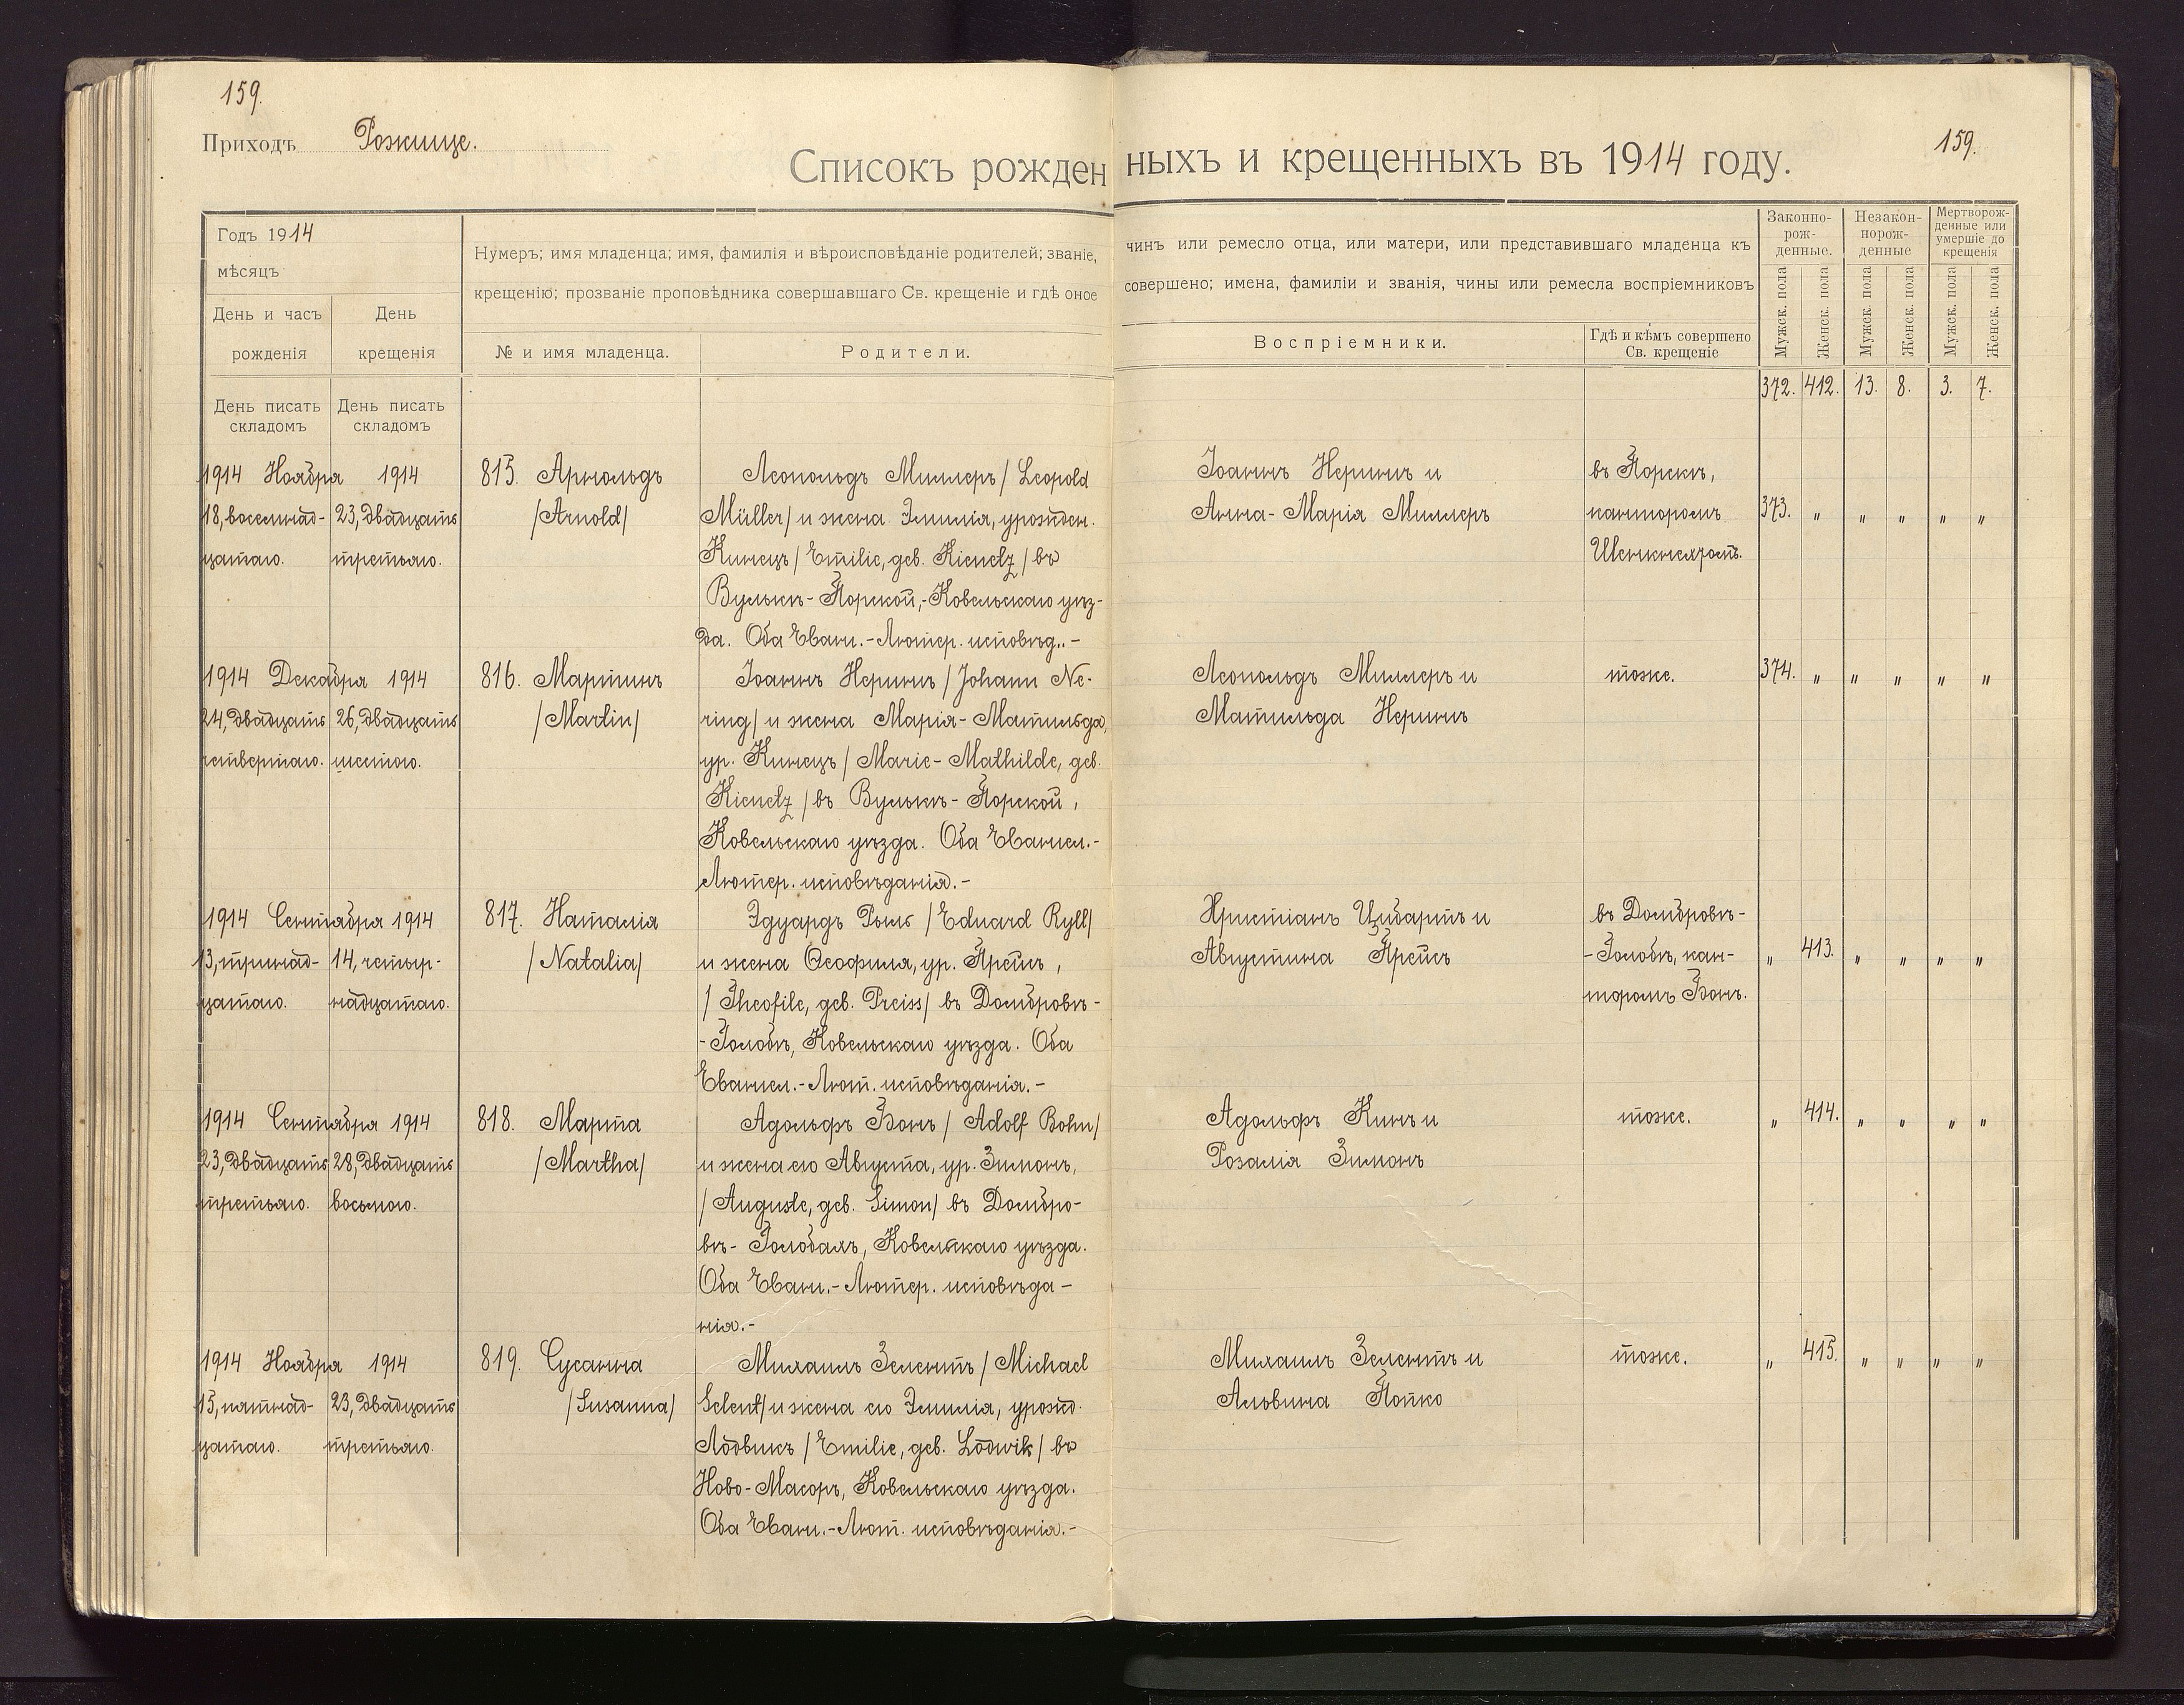 159.
159.
Приходъ Рожище.
Списокъ рожденныхъ и крещенныхъ въ 1914 году.
Годъ 1914
мѣсяцъ
День и часъ
рожденія
День
крещенія
Нумеръ; имя младенца; имя, фамилія и вѣроисповѣданіе родителей; званіе, чинъ или ремесло отца, или матери, или представившаго младенца къ
крещенію; прозваніе проповѣдника совершавшаго Св. крещеніе и гдѣ оное совершено; имена, фамиліи и званія, чины или ремесла воспріемниковъ
№ и имя младенца.
Родители.
Воспріемники.
Гдѣ и кѣмъ совершено
Св. крещеніе
Законно-
рож-
денные.
Незакон-
норож-
денные
Мертворож-
денные или
умершіе до
крещенія
Мужск. пола
Женск. пола
Мужск. пола
Женск. пола
Мужск. пола
Женск. пола
День писать
складомъ
День писать
складомъ
372. 412. 13. 8. 3. 7.
1914 Ноября 1914
18, восемнад-
цатаго.
23, двадцать
третьяго.
815. Арнольдъ
/Arnold/
Леопольдъ Миллеръ / Leopold
Müller/ и жена Эмилія, урожден.
Кинецъ / Emilie, geb. Kienetz / въ
Вулькѣ-Порской,-Ковельскаго уѣз-
да. Оба Еванг.-Лютер. исповѣд..-
Іоаннъ Нерингъ и
Анна-Марія Миллеръ
въ Порскѣ,
канторомъ
373. " " " " "
1914 Декабря 1914
24, двадцать
четвертаго.
26, двадцать
шестого.
816. Мартинъ
/Martin/
Іоаннъ Нерингъ / Johann Ne-
ring/ и жена Марія-Матильда,
ур. Кинецъ / Marie-Mathilde, geb.
Kienetz / въ Вулькѣ-Порской,
Ковельскаго уѣзда. Оба Евангел.-
Лютер. исповѣданія.-
Леопольдъ Миллеръ и
Матильда Нерингъ
тоже.
374. " " " " "
1914 Сентября 1914
13, тринад-
цатаго.
14, четыр-
надцатаго.
817. Наталія
/Natalia/
Эдуардъ Рыль / Eduard Ryll/
и жена Ѳеофиля, ур. Прейсъ,
/ Theofile, geb. Preiss/ въ Домбровѣ-
-Голобѣ, Ковельскаго уѣзда. Оба
Евангел.-Лют. исповѣданія.-
Христіанъ Цибартъ и
Августина Прейсъ
въ Домбровѣ-
-Голобѣ, кан-
торомъ Бонъ.
" 413. " " " "
1914 Сентября 1914
23, двадцать
третьяго.
28, двадцать
восьмого.
818. Марта
/Martha/
Адольфъ Бонъ / Adolf Bohn/
и жена его Августа, ур. Зимонъ,
/ Auguste, geb. Simon/ въ Домбро-
вѣ-Голобахъ, Ковельскаго уѣзда.
Оба Еванг.-Лютер. исповѣда-
нія.-
Адольфъ Кинъ и
Розалія Зимонъ
тоже.
" 414. " " " "
1914 Ноября 1914
15, пятнад-
цатаго.
23, двадцать
третьяго.
819. Сусанна
/Susanna/
Михаилъ Зелентъ / Michael
Selent/ и жена его Эмилія, урожд.
Лодвикъ / Emilie, geb. Lodwik/ въ
Ново-Масоръ, Ковельскаго уѣзда.
Оба Еванг.-Лют. исповѣданія.-
Михаилъ Зелентъ и
Альвина Попко
тоже.
" 415. " " " "